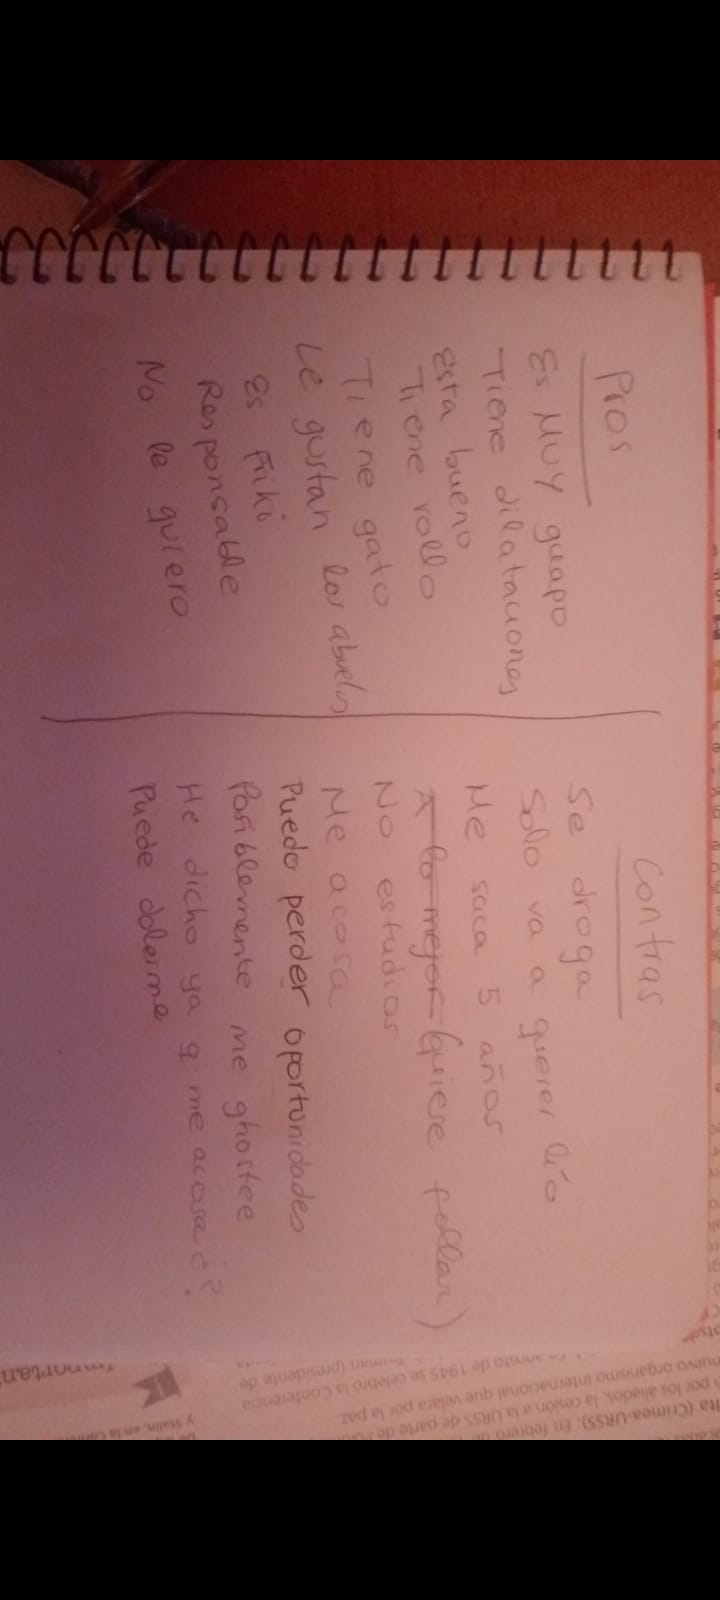 Pros
Es MUY guapo
Tiene dilataciones
Esta bueno
Tiene rollo
Tiene gato
Le gustan los abuelos
Es Friki
Responsable
No le quiero
Contras
Se droga
Solo va a querer lío
Me saca 5 años
A lo mejor (quiere follar)
No estudios
Me acosa
Puedo perder oportunidades
Posiblemente me ghostee
He dicho ya q me acosa ¿?
Puede dolerme
lta (Crimea-URSS). En febrero de
por los aliados, la cesión a la URSS de parte de
nuevo organismo internacional que velara por la paz.
agosto de 1945 se celebró la Conferencia
Truman (presidente de
y Stalin, en la